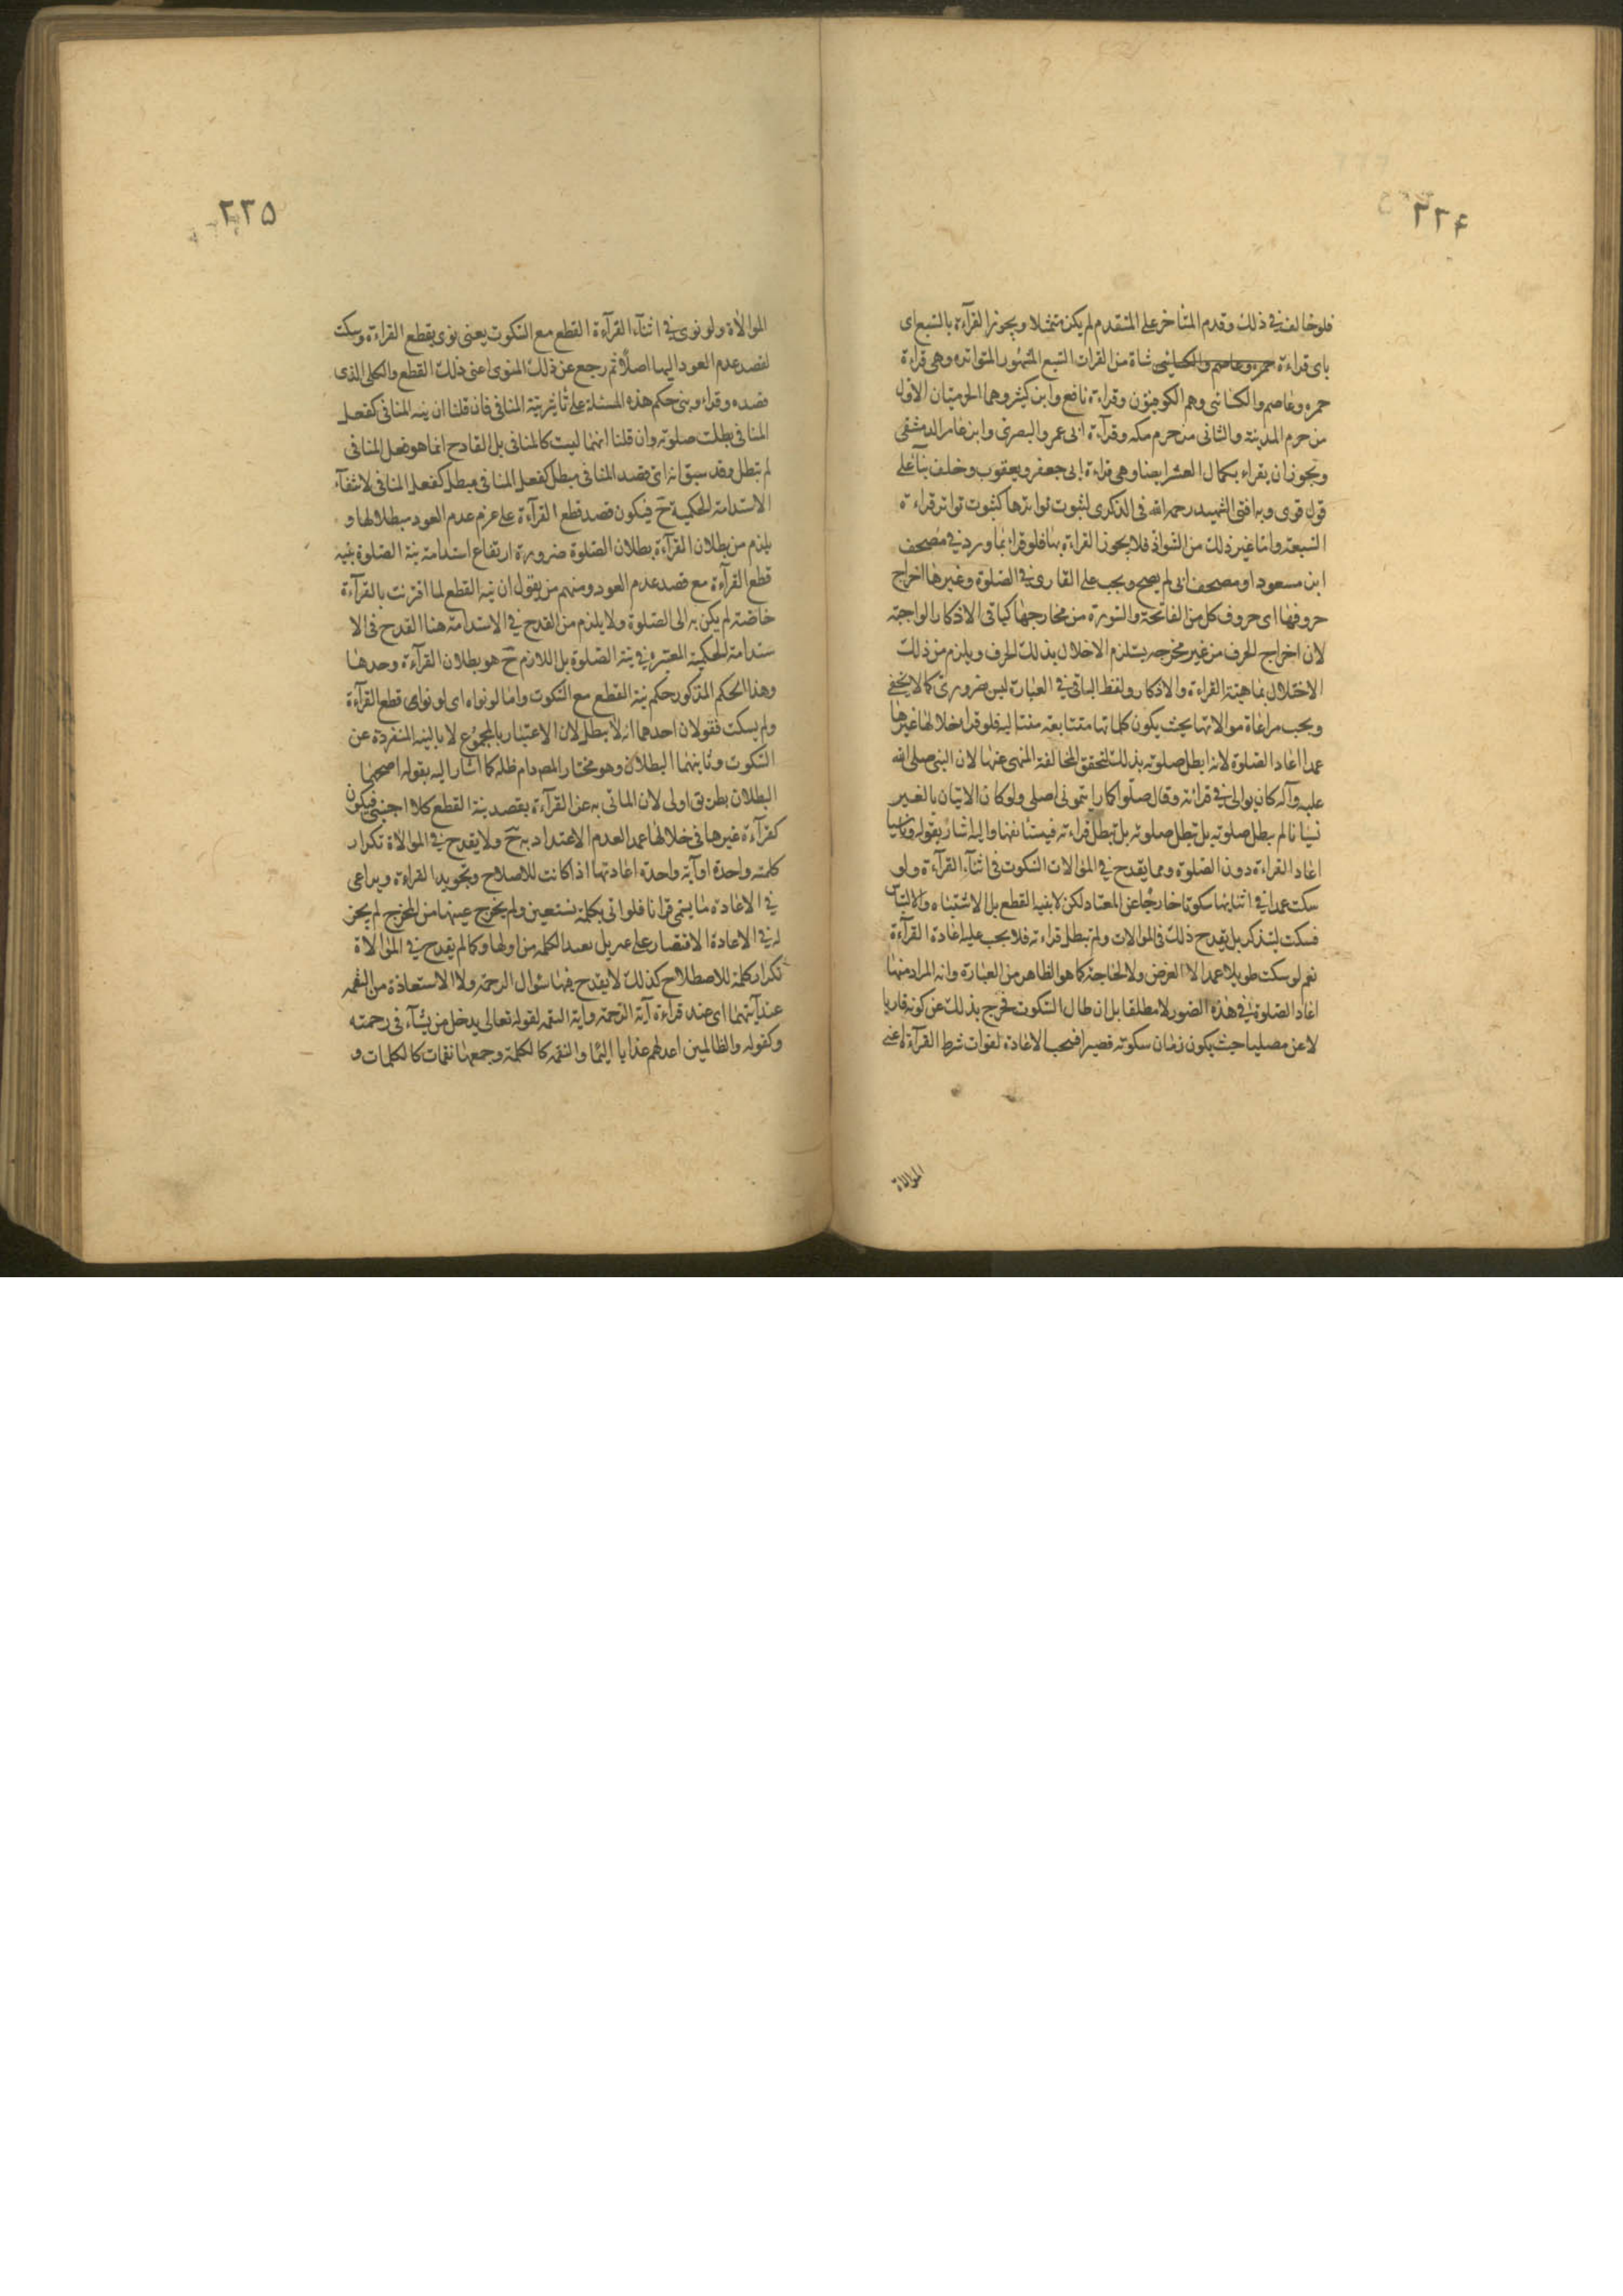 ٢٢٤
فلو خالف في ذلك وقدم المتاخر على المتقدم لم يكن متمثلا ويجوز القرآءة بالسبع اى
باى قراءة حمزه وعاصم والكسائى شاة من القرات السبع المشهور المتواتره وهى قراءة
حمزه وعاصم والكسائى وهم الكوفيون وقراءة نافع وابن كثير وهما الحرميتان الاول
من حرم المدينة والثانى من حرم مكه وقرآءة ابى عمرو البصرى وابن عامر الدمشقى
ويجوز ان يقراء بكمال العشر ايضا وهى قراءة ابى جعفر ويعقوب وخلف بنآء على
قول قوى وبه افتى الشهيد رحمه الله فى الذكرى لثبوت تواترها كثبوت تواتر قراءة
السبعة واما غير ذلك من الشواذ فلا يجوز القراءة بها فلو قرا بما ورد في مصحف
ابن مسعود او مصحف ابى لم يصح ويجب على القارى في الصلوة وغيرها اخراج
حروفها اى حروف كل من الفاتحة والسورة من مخارجها كباقى الاذكار الواجبة
لان اخراج الحرف من غير مخرجه يستلزم الاخلال بذلك الحرف ويلزم من ذلك
الاختلال بماهية القراءة والاذكار ولفظ الباقى في العبارة ليس ضرورى كما لا يخفى
ويجب مراعاة موالاتها بحيث يكون كلماتها متتابعة متتاليه فلو قرا خلالها غيرها
عمدا اعاد الصلوة لانه ابطل صلوته بذلك لتحقق المخالفة المنهى عنها لان النبى صلى الله
عليه وآله كان يوالى في قرائته وقال صلوا كما رايتمونى اصلى ولو كان الاتيان بالغير
نسيانا لم يبطل صلوته بل تبطل صلوته بل تبطل قراءته فيستانفها واليه اشار بقوله وناسيا
اعاد القراءة دون الصلوة ومما يقدح في الموالات السكوت فى اثنآء القرآءة ولو
سكت عمدا فى اثنايها سكوتا خارجا عن المعتاد لكن لا بنية القطع بل الاشتباه والالتباس
فسكت ليتذكر بل يقدح ذلك فى الموالات ولم تبطل قراءته فلا يجب عليه اعادة القرآءة
نعم لو سكت طويلا عمدا لا لغرض ولا لحاجة كما هو الظاهر من العبارة وانه المراد منها
اعاد الصلوة في هذه الصور لا مطلقا بل ان طال السكوت فخرج بذلك عن كونه قاريا
لا عن مصليا حيث يكون زمان سكوته قصيرا فيجب الاعادة لفوات شرط القرآءة اعنى
الموالاة
٢٢٥
الموالاة ولو نوى في اثنآء القرآءة القطع مع السكوت يعنى نوى بقطع القراءة وسكت
لقصد عدم العود اليها اصلا ثم رجع عن ذلك المنوى اعنى ذلك القطع والكلى الذى
قصده وقراء وبنى حكم هذه المسئلة على تأثير نية المنافى فان قلنا ان نية المنافى كفعل
المنافى بطلت صلوته وان قلنا انها ليست كالمنافى بل القادح انما هو فعل المنافى
لم تبطل وقد سبق انه اى قصد المنافى مبطل كفعل المنافى مبطل كفعل المنافى لانتفآء
الاستدامة الحكمية ح فيكون قصد قطع القرآءة على عزم عدم العود مبطلا لها و
يلزم من بطلان القرآءة بطلان الصلوة ضرورة ارتفاع استدامة نية الصلوة بنية
قطع القرآءة مع قصد عدم العود ومنهم من يقول ان نية القطع لما اقترنت بالقرآءة
خاصة لم يكن به الى الصلوة ولا يلزم من القدح في الاستدامة هنا القدح فى الا
ستدامة الحكمية المعتبره في نية الصلوة بل اللازم ح هو بطلان القرآءة وحدها
وهذا الحكم المذكور حكم نية القطع مع السكوت واما لو نواه اى لو نواى قطع القرآءة
ولم يسكت فقولان احدهما انه لا يبطل لان الاعتبار بالمجموع لا بالنية المنفردة عن
السكوت وثانيهما البطلان وهو مختار المص دام ظله كما اشار اليه بقوله اصحهما
البطلان بطريق اولى لان الماتى به عن القرآءة بقصد نية القطع كلاا جنبى فيكون
كقرآءة غيرها فى خلالها عمدا لعدم الاعتداد به ح ولا يقدح في الموالاة تكرار
كلمة واحدة او آية واحدة اعادتها اذا كانت للاصلاح وتجويدا لقراءة ويراعى
في الاعادة ما يسمى قرانا فلو اتى بكلمة نستعين ولم يخرج عينها من المخرج لم يجز
له في الاعادة الاقتصار على عين بل يعيد الكلمه من اولها وكما لم يقدح في الموالاة
تكرار كلمة للاصطلاح كذلك لا يقدح فيها سئوال الرحمة ولا الاستعاذة من النقمه
عند آيتهما اى عند قراءة آية الرحمة واية النقمه لقوله تعالى يدخل من يشآء فى رحمته
وكقوله والظالمين اعد لهم عذابا اليما والنقمه كالكلمة وجمعها نقمات كالكلمات و